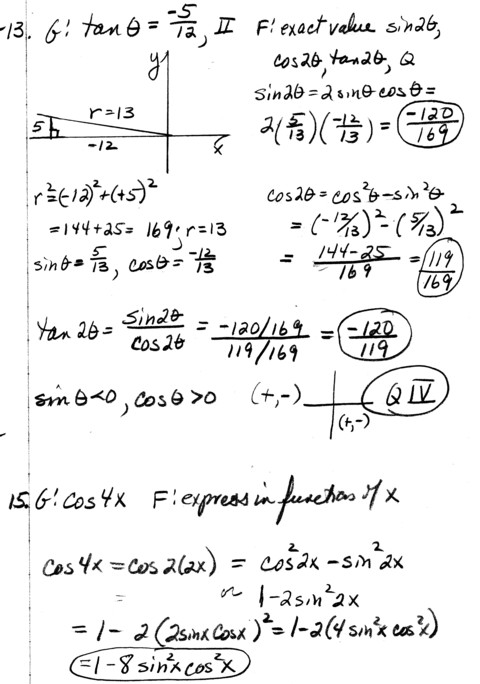 13. G: tan θ = -5/12, II F: exact value sin2θ,
cos2θ, tan2θ, Q
sin2θ = 2 sinθ cosθ =
2(5/13)(-12/13) = -120/169
y
r = 13
5
-12
x
r² = (-12)² + (+5)²
= 144 + 25 = 169; r = 13
sinθ = 5/13, cosθ = -12/13
cos2θ = cos²θ - sin²θ
= (-12/13)² - (5/13)²
= 144-25/169 = 119/169
tan 2θ = sin2θ/cos2θ = -120/169/119/169 = -120/119
sin θ < 0, cos θ > 0 (+,-) Q IV
(+,-)
15. G: cos 4x F: express in function of x
cos 4x = cos 2(2x) = cos²2x - sin²2x
= or 1 - 2sin²2x
= 1 - 2(2sinx cosx)² = 1 - 2(4 sin²x cos²x)
= 1 - 8 sin²x cos²x